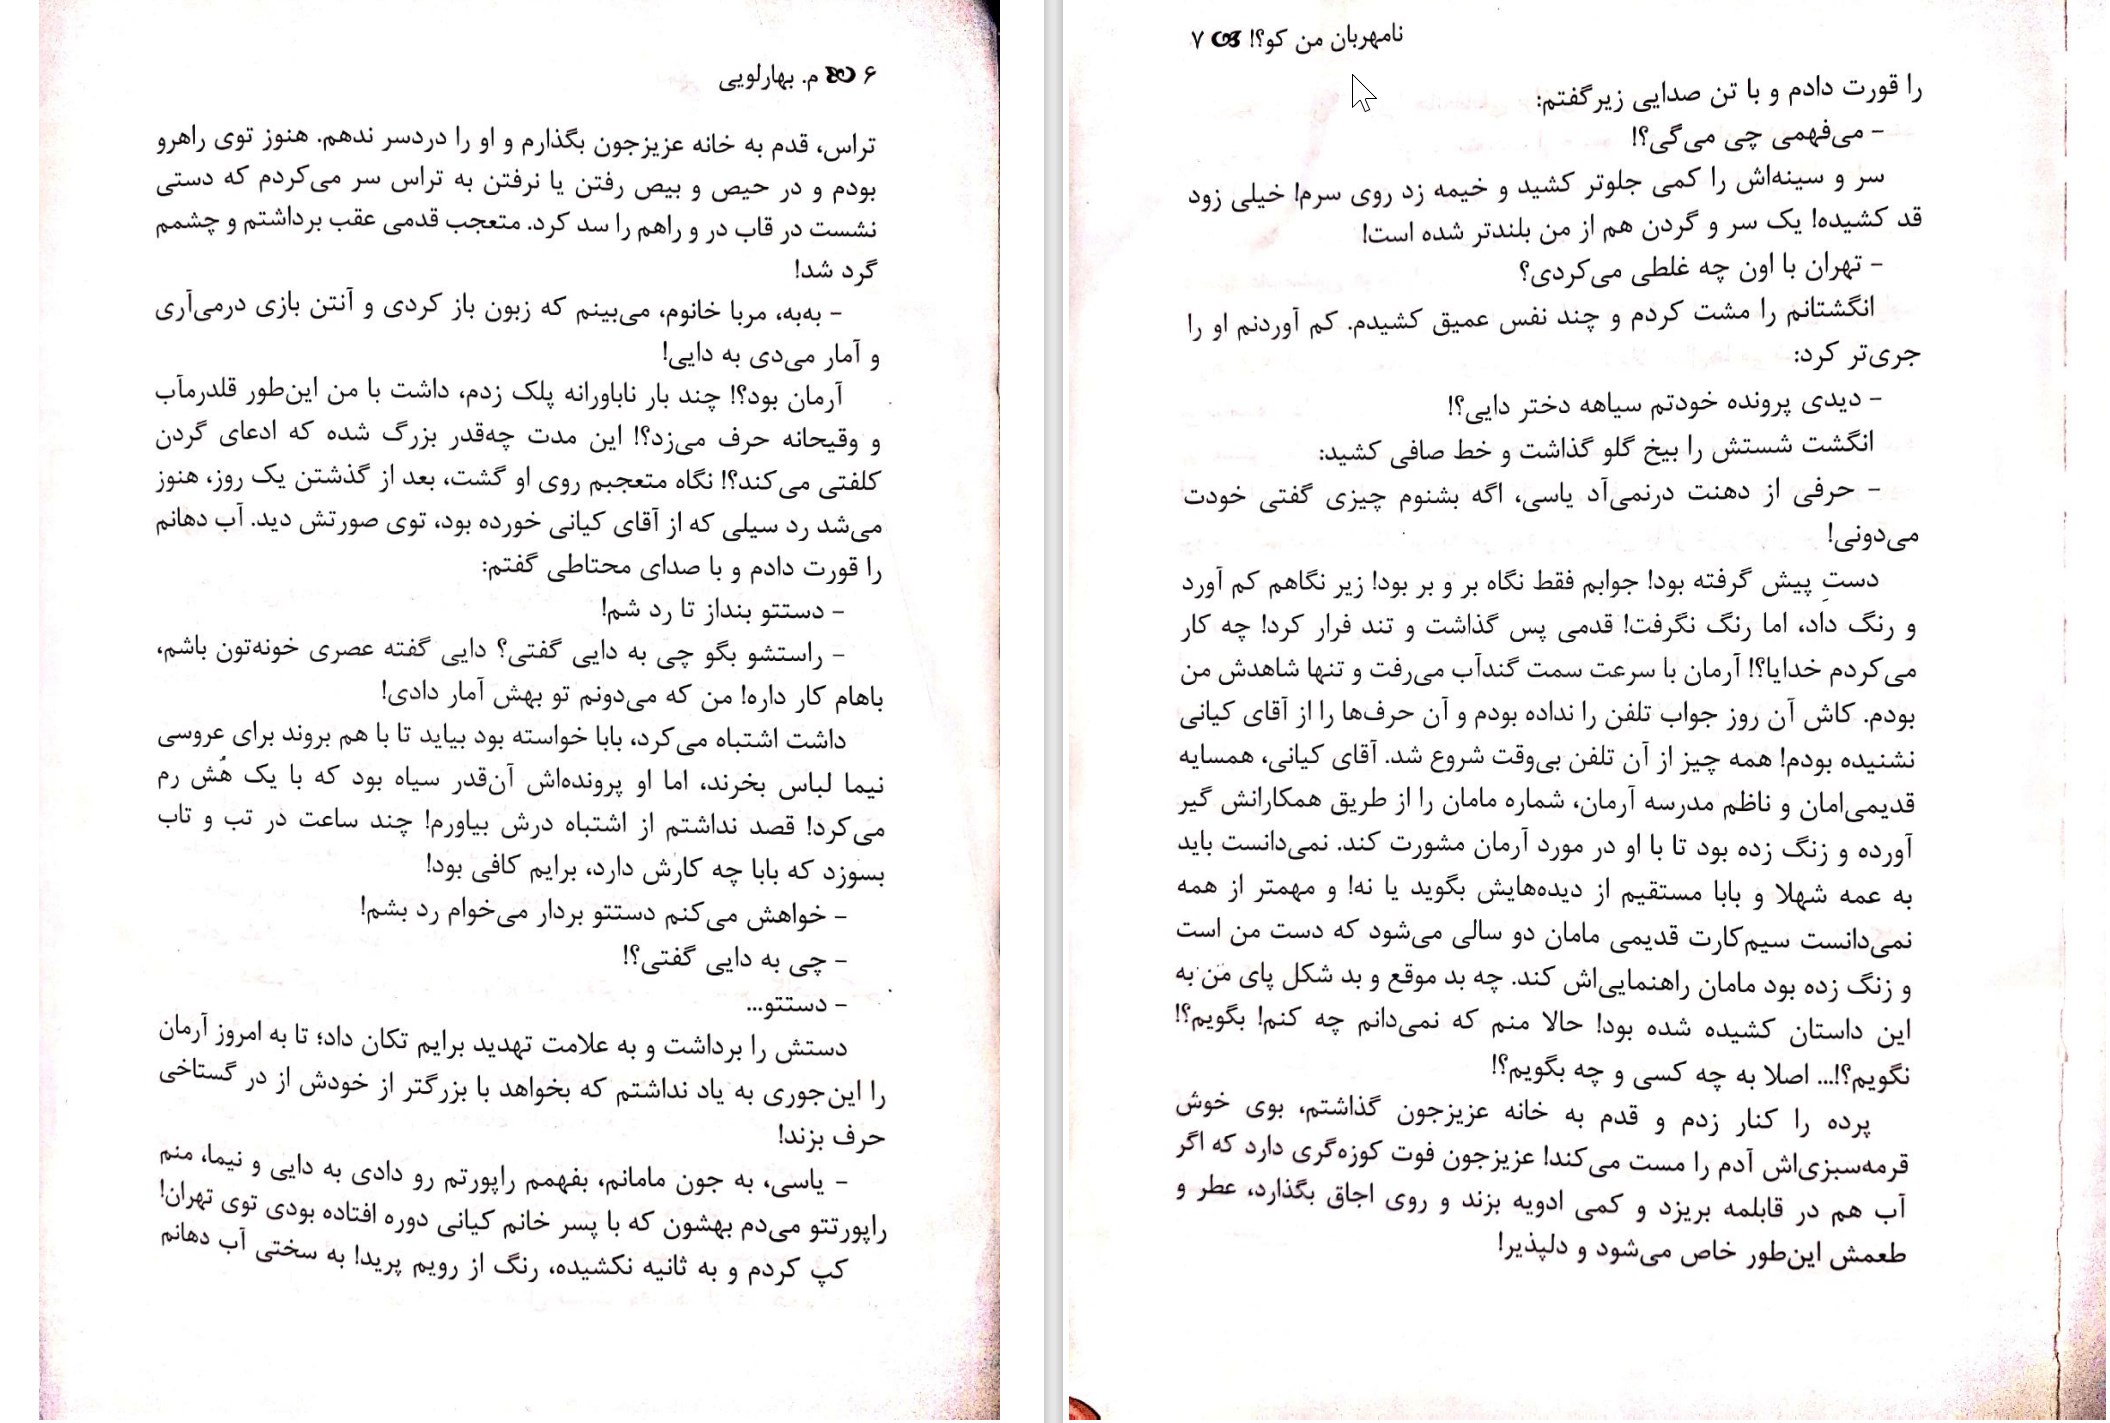 ۶ م. بهارلویی
تراس، قدم به خانه عزیزجون بگذارم و او را دردسر ندهم. هنوز توی راهرو
بودم و در حیص و بیص رفتن یا نرفتن به تراس سر می‌کردم که دستی
نشست در قاب در و راهم را سد کرد. متعجب قدمی عقب برداشتم و چشمم
گرد شد!
- به‌به، مربا خانوم، می‌بینم که زبون باز کردی و آنتن بازی درمی‌آری
و آمار می‌دی به دایی!
آرمان بود؟! چند بار ناباورانه پلک زدم، داشت با من این‌طور قلدرمآب
و وقیحانه حرف می‌زد؟! این مدت چه‌قدر بزرگ شده که ادعای گردن
کلفتی می‌کند؟! نگاه متعجبم روی او گشت، بعد از گذشتن یک روز، هنوز
می‌شد رد سیلی که از آقای کیانی خورده بود، توی صورتش دید. آب دهانم
را قورت دادم و با صدای محتاطی گفتم:
- دستتو بنداز تا رد شم!
- راستشو بگو چی به دایی گفتی؟ دایی گفته عصری خونه‌تون باشم،
باهام کار داره! من که می‌دونم تو بهش آمار دادی!
داشت اشتباه می‌کرد، بابا خواسته بود بیاید تا با هم بروند برای عروسی
نیما لباس بخرند، اما او پرونده‌اش آن‌قدر سیاه بود که با یک هُش رم
می‌کرد! قصد نداشتم از اشتباه درش بیاورم! چند ساعت در تب و تاب
بسوزد که بابا چه کارش دارد، برایم کافی بود!
- خواهش می‌کنم دستتو بردار می‌خوام رد بشم!
- چی به دایی گفتی؟!
- دستتو...
دستش را برداشت و به علامت تهدید برایم تکان داد؛ تا به امروز آرمان
را این‌جوری به یاد نداشتم که بخواهد با بزرگتر از خودش از در گستاخی
حرف بزند!
- یاسی، به جون مامانم، بفهمم راپورتم رو دادی به دایی و نیما، منم
راپورتتو می‌دم بهشون که با پسر خانم کیانی دوره افتاده بودی توی تهران!
کپ کردم و به ثانیه نکشیده، رنگ از رویم پرید! به سختی آب دهانم
نامهربان من کو؟! ۷
را قورت دادم و با تن صدایی زیرگفتم:
- می‌فهمی چی می‌گی؟!
سر و سینه‌اش را کمی جلوتر کشید و خیمه زد روی سرم! خیلی زود
قد کشیده! یک سر و گردن هم از من بلندتر شده است!
- تهران با اون چه غلطی می‌کردی؟
انگشتانم را مشت کردم و چند نفس عمیق کشیدم. کم آوردنم او را
جری‌تر کرد:
- دیدی پرونده خودتم سیاهه دختر دایی؟!
انگشت شستش را بیخ گلو گذاشت و خط صافی کشید:
- حرفی از دهنت درنمی‌آد یاسی، اگه بشنوم چیزی گفتی خودت
می‌دونی!
دستِ پیش گرفته بود! جوابم فقط نگاه بر و بر بود! زیر نگاهم کم آورد
و رنگ داد، اما رنگ نگرفت! قدمی پس گذاشت و تند فرار کرد! چه کار
می‌کردم خدایا؟! آرمان با سرعت سمت گندآب می‌رفت و تنها شاهدش من
بودم. کاش آن روز جواب تلفن را نداده بودم و آن حرف‌ها را از آقای کیانی
نشنیده بودم! همه چیز از آن تلفن بی‌وقت شروع شد. آقای کیانی، همسایه
قدیمی‌امان و ناظم مدرسه آرمان، شماره مامان را از طریق همکارانش گیر
آورده و زنگ زده بود تا با او در مورد آرمان مشورت کند. نمی‌دانست باید
به عمه شهلا و بابا مستقیم از دیده‌هایش بگوید یا نه! و مهمتر از همه
نمی‌دانست سیم‌کارت قدیمی مامان دو سالی می‌شود که دست من است
و زنگ زده بود مامان راهنمایی‌اش کند. چه بد موقع و بد شکل پای من به
این داستان کشیده شده بود! حالا منم که نمی‌دانم چه کنم! بگویم؟!
نگویم؟!... اصلا به چه کسی و چه بگویم؟!
پرده را کنار زدم و قدم به خانه عزیزجون گذاشتم، بوی خوش
قرمه‌سبزی‌اش آدم را مست می‌کند! عزیزجون فوت کوزه‌گری دارد که اگر
آب هم در قابلمه بریزد و کمی ادویه بزند و روی اجاق بگذارد، عطر و
طعمش این‌طور خاص می‌شود و دلپذیر!